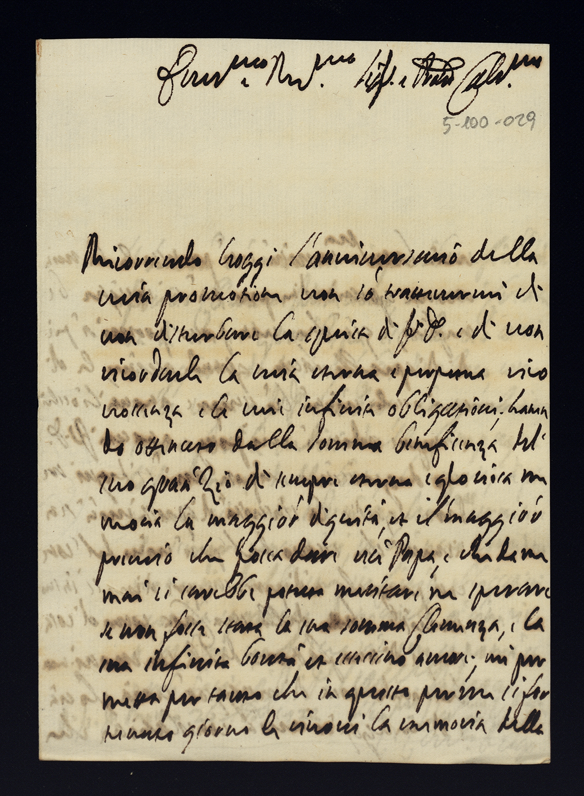 Em.mo e Rev.mo Sig.r e Pad.ne Col.mo
5-100-029
Ricorrendo hoggi l'anniversario della
mia promotione non sò trattenermi di
non disturbare la quiete di V.E. e di non
ricordarle la mia eterna e perpetua rico
noscenza, e le mie infinite obligazioni, haven
do ottenuto dalla somma beneficenza del
suo gran Zio di sempre eterna e gloriosa me
moria la maggior dignità, et il maggior
premio che possa dare un Papa, e che da me
mai si sarebbe potuto meritare, ne sperare
se non fosse stata la sua somma Clemenza, e la
sua infinita bontà et amore; mi per
metta per tanto che in questo per me si for
tunato giorno le rinovi la memoria della